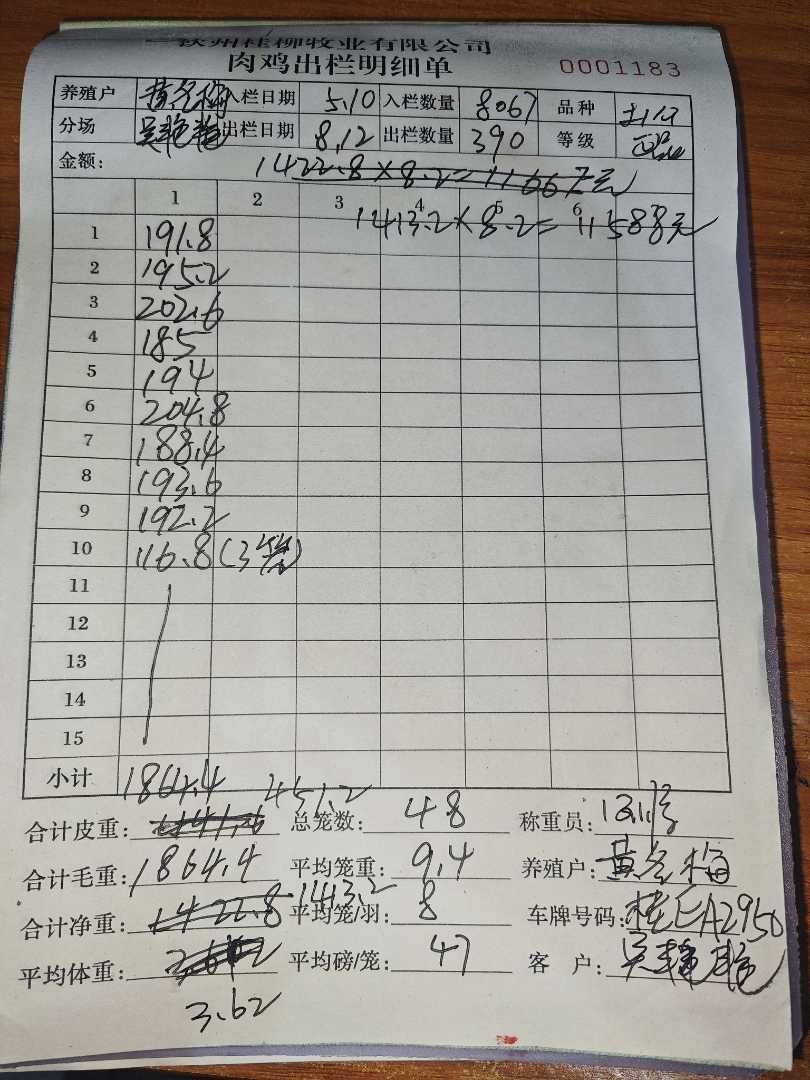 钦州桂柳牧业有限公司
肉鸡出栏明细单 0001183
养殖户 黄冬梅 入栏日期 5.10 入栏数量 8067 品种
分场 吴艳艳 出栏日期 8.12 出栏数量 390 等级
金额: 1422.8×8.2=11667元
1 2 3 4 5 6 7
1413.2×8.2=11588元
1 191.8
2 195.2
3 202.6
4 185
5 194
6 204.8
7 188.4
8 193.6
9 192.2
10 116.8(3笼)
11
12
13
14
15
小计 1864.4
451.2
合计皮重: 总笼数: 48 称重员:
合计毛重: 1864.4 平均笼重: 9.4 养殖户: 黄冬梅
1413.2
合计净重: 1422.8 平均笼/羽: 8 车牌号码: 桂EA2950
平均体重: 平均磅/笼: 47 客户:
3.62